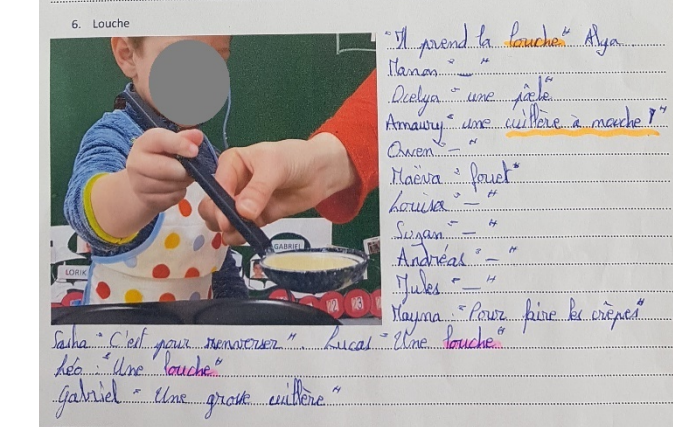 6. Louche
"Il prend la louche" Alya
Manon " — "
Ocelya " une pöele "
Amaury " une cuillère à mouche ! "
Owen " — "
Maëva " fouet "
Louisa " — "
Suzan " — "
Andréas " — "
Jules " — "
Mayna : "Pour faire les crêpes"
GABRIEL
LORIK
Sasha " C'est pour renverser ". Lucas " Une louche "
Léo : " Une louche "
Gabriel " Une grosse cuillère "